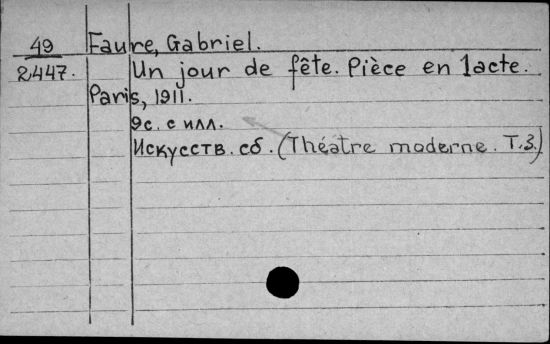 49 Faure, Gabriel.
2447. Un jour de fête. Pièce en 1 acte.
Paris, 1911.
9с. с илл.
Искусств. сб. (Théatre moderne. T.3.)